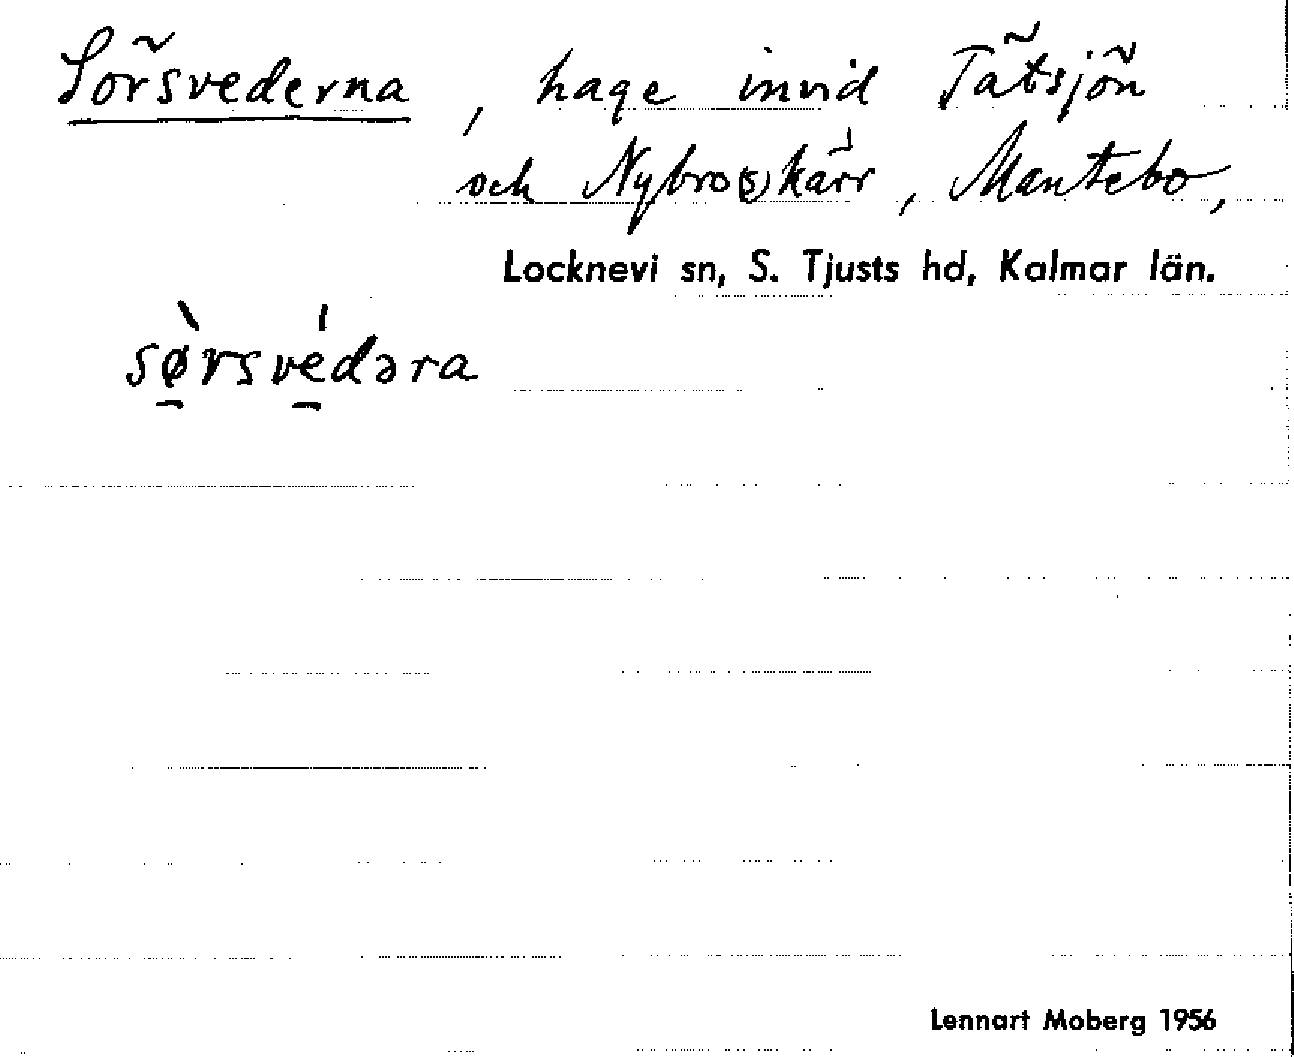 Sörsvederna, hage invid Tätsjön
och Nybro(s)kärr, Mantebo,
Locknevi sn, S. Tjusts hd, Kalmar län.
sø̀rsvédəra
Lennart Moberg 1956